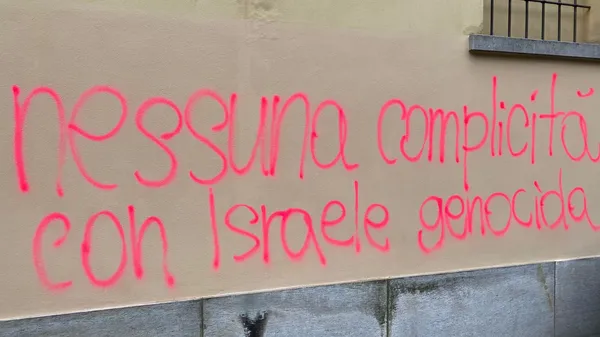 nessuna complicità
con Israele genocida